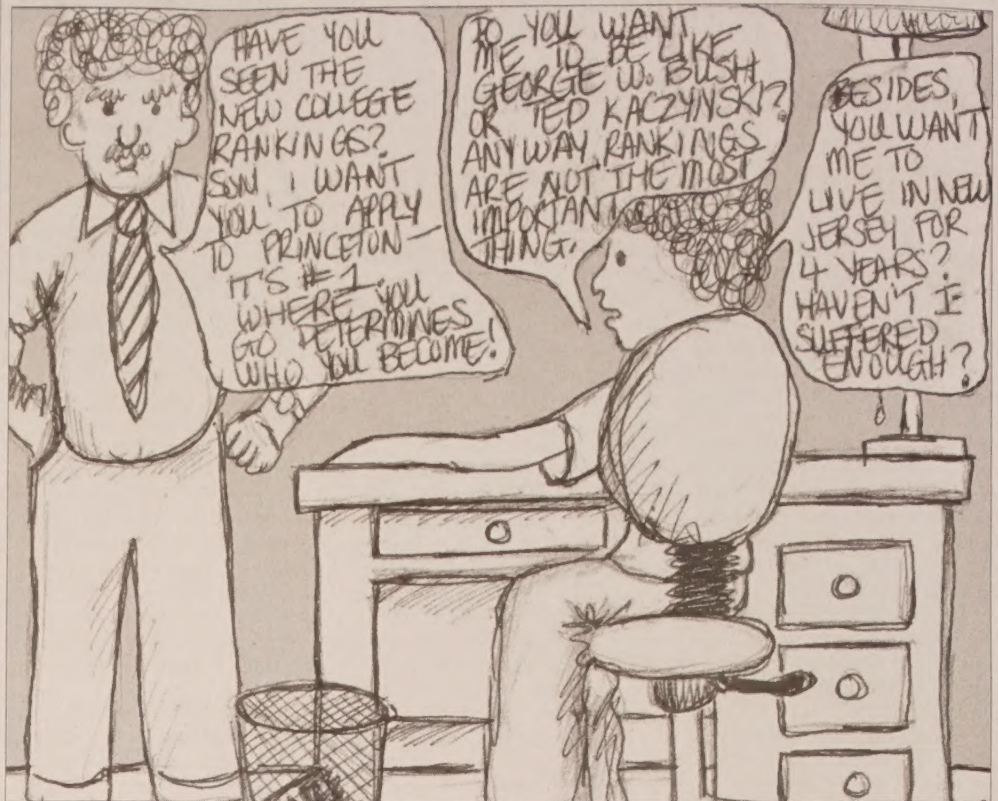 HAVE YOU
SEEN THE
NEW COLLEGE
RANKINGS?
SON, I WANT
YOU TO APPLY
TO PRINCETON—
IT'S #1.
WHERE YOU
GO DETERMINES
WHO YOU BECOME!
DO YOU WANT
ME TO BE LIKE
GEORGE W. BUSH
OR TED KACZYNSKI?
ANYWAY, RANKINGS
ARE NOT THE MOST
IMPORTANT
THING.
BESIDES,
YOU WANT
ME TO
LIVE IN NEW
JERSEY FOR
4 YEARS?
HAVEN'T I
SUFFERED
ENOUGH?